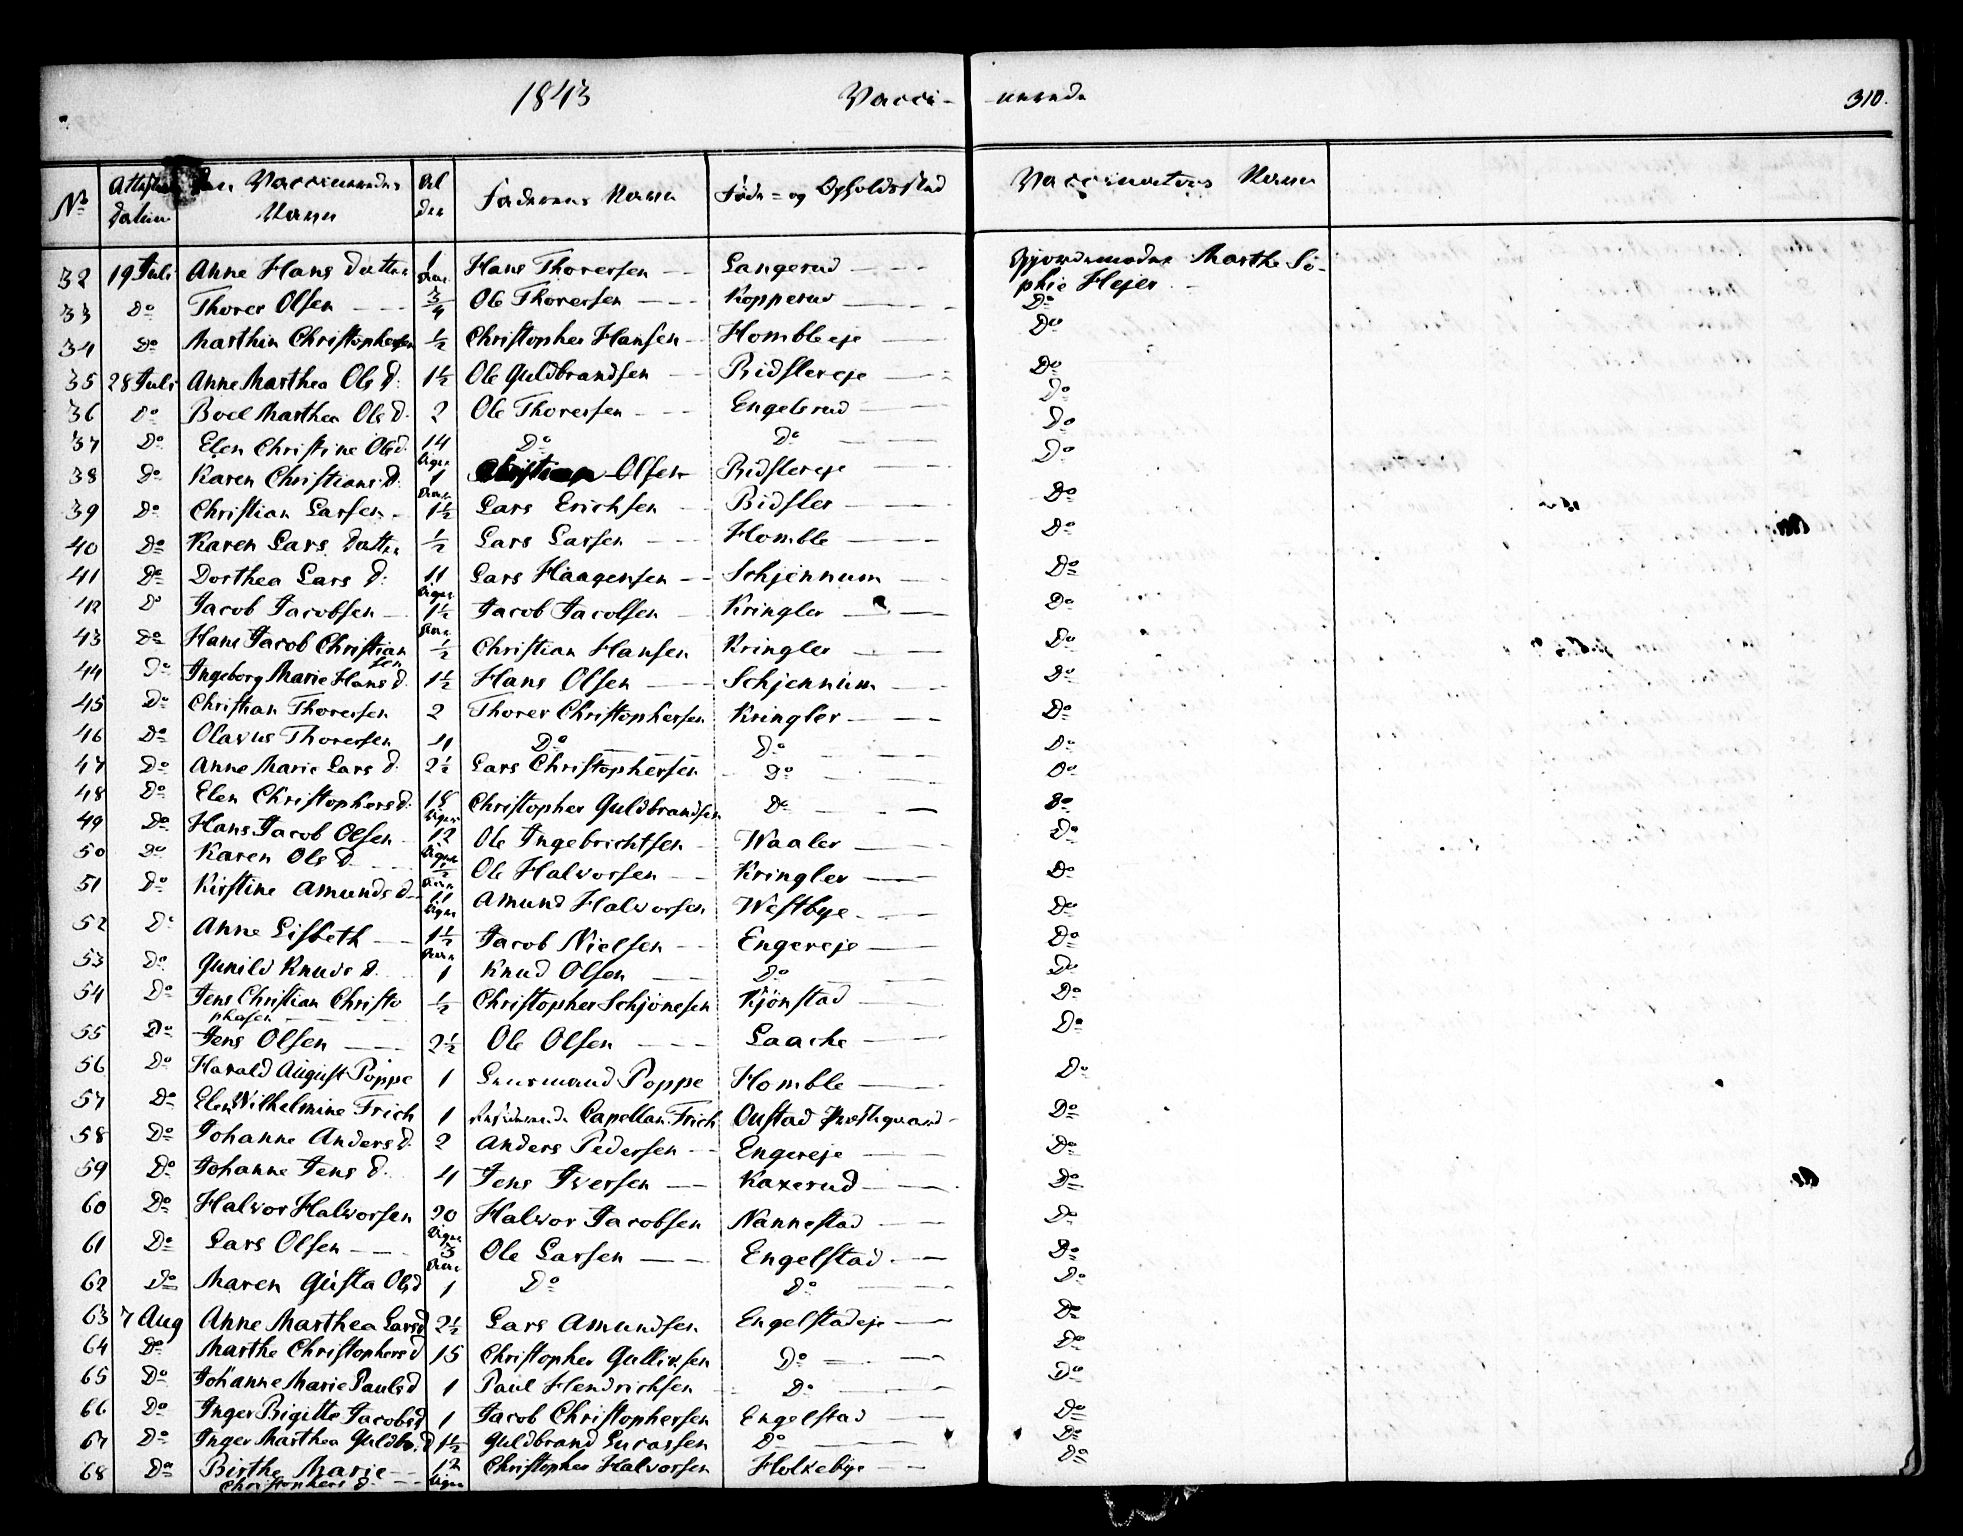 1843 Vacci- nerede 310.
No Attestens Datum Den Vaccineredes Navn Alder Faderens Navn Føde- og Opholdssted Vaccinateurs Navn
32 19 Juli Anne Hans datter 1 Hans Thoresen Langerud Gjordemoder Marthe So-
phie Hejer
33 Do Thorer Olsen 3/4 Ole Thoresen Kopperud Do
34 Do Marthin Christophersen 1/2 Christopher Hansen Homble eje Do
35 28 Juli Anne Marthea Ols d. 1 1/2 Ole Guldbrandsen Ridslereje Do
36 Do Boel Marthea Ols d. 2 Ole Thoresen Engelsrud Do
37 Do Elen Christine Olsd. 14 Uger Do Do Do
38 Do Karen Christians d. 1 Christian Olsen Ridslereje Do
39 Do Christian Larsen 1 1/2 Lars Erichsen Ridsler Do
40 Do Karen Lars datter 1/2 Lars Larsen Homble Do
41 Do Dorthea Lars d: 11 Uger Lars Haagensen Schjennum Do
42 Do Jacob Jacobsen 1 1/2 Jacob Jacobsen Kringler Do
43 Do Hans Jacob Christian
sen 1/2 Christian Hansen Kringler Do
44 Do Ingeborg Marie Hans d. 1 1/2 Hans Olsen Schjennum Do
45 Do Christian Thoresen 2 Thorer Christophersen Kringler Do
46 Do Olavus Thoresen 4 Do Do Do
47 Do Anne Marie Lars d. 2 1/2 Lars Christophersen Do Do
48 Do Elen Christophersd. 18 Uger Christopher Guldbrandsen Do Do
49 Do Hans Jacob Olsen 12 Uger Ole Ingebrichtsen Waaler Do
50 Do Karen Ols d. 1/2 Ole Halvorsen Kringler Do
51 Do Kirstine Amunds d 11 Uger Amund Halvorsen Westbye Do
52 Do Anne Lisbeth 1 1/2 Jacob Nielsen Engereje Do
53 Do Gunild Knuds d. 1 Knud Olsen Do Do
54 Do Jens Christian Christo
phersen 1/2 Christopher Schjønesen Kjønstad Do
55 Do Jens Olsen 2 1/2 Ole Olsen Laache Do
56 Do Harald August Poppe 1 Lensmand Poppe Homble Do
57 Do Elen Wilhelmine Frich 1 Residerende Capellan Frich Oustad Præstegaard Do
58 Do Johanne Anders d. 2 Anders Pedersen Engereje Do
59 Do Johanne Jens d. 4 Jens Iversen Kaxerud Do
60 Do Halvor Halvorsen 20 Uger Halvor Jacobsen Nannestad Do
61 Do Lars Olsen 3 Ole Larsen Engelstad Do
62 Do Maren Gusta Olsd 1 Do Do Do
63 7 Aug Anne Marthea Larsd 2 1/2 Lars Amundsen Engelstadeje Do
64 Do Marthe Christophersd 15 Christopher Gulliksen Do Do
65 Do Johanne Marie Paulsd 1 Paul Hendrichsen Do Do
66 Do Inger Birgitte Jacobsd 1 Jacob Christophersen Engelstad Do
67 Do Inger Marthea Guldb. d 1 1/2 Guldbrand Lucassen Do Do
68 Do Birthe Marie
Christophers d. 12 Uger Christopher Halvorsen Holkebye Do